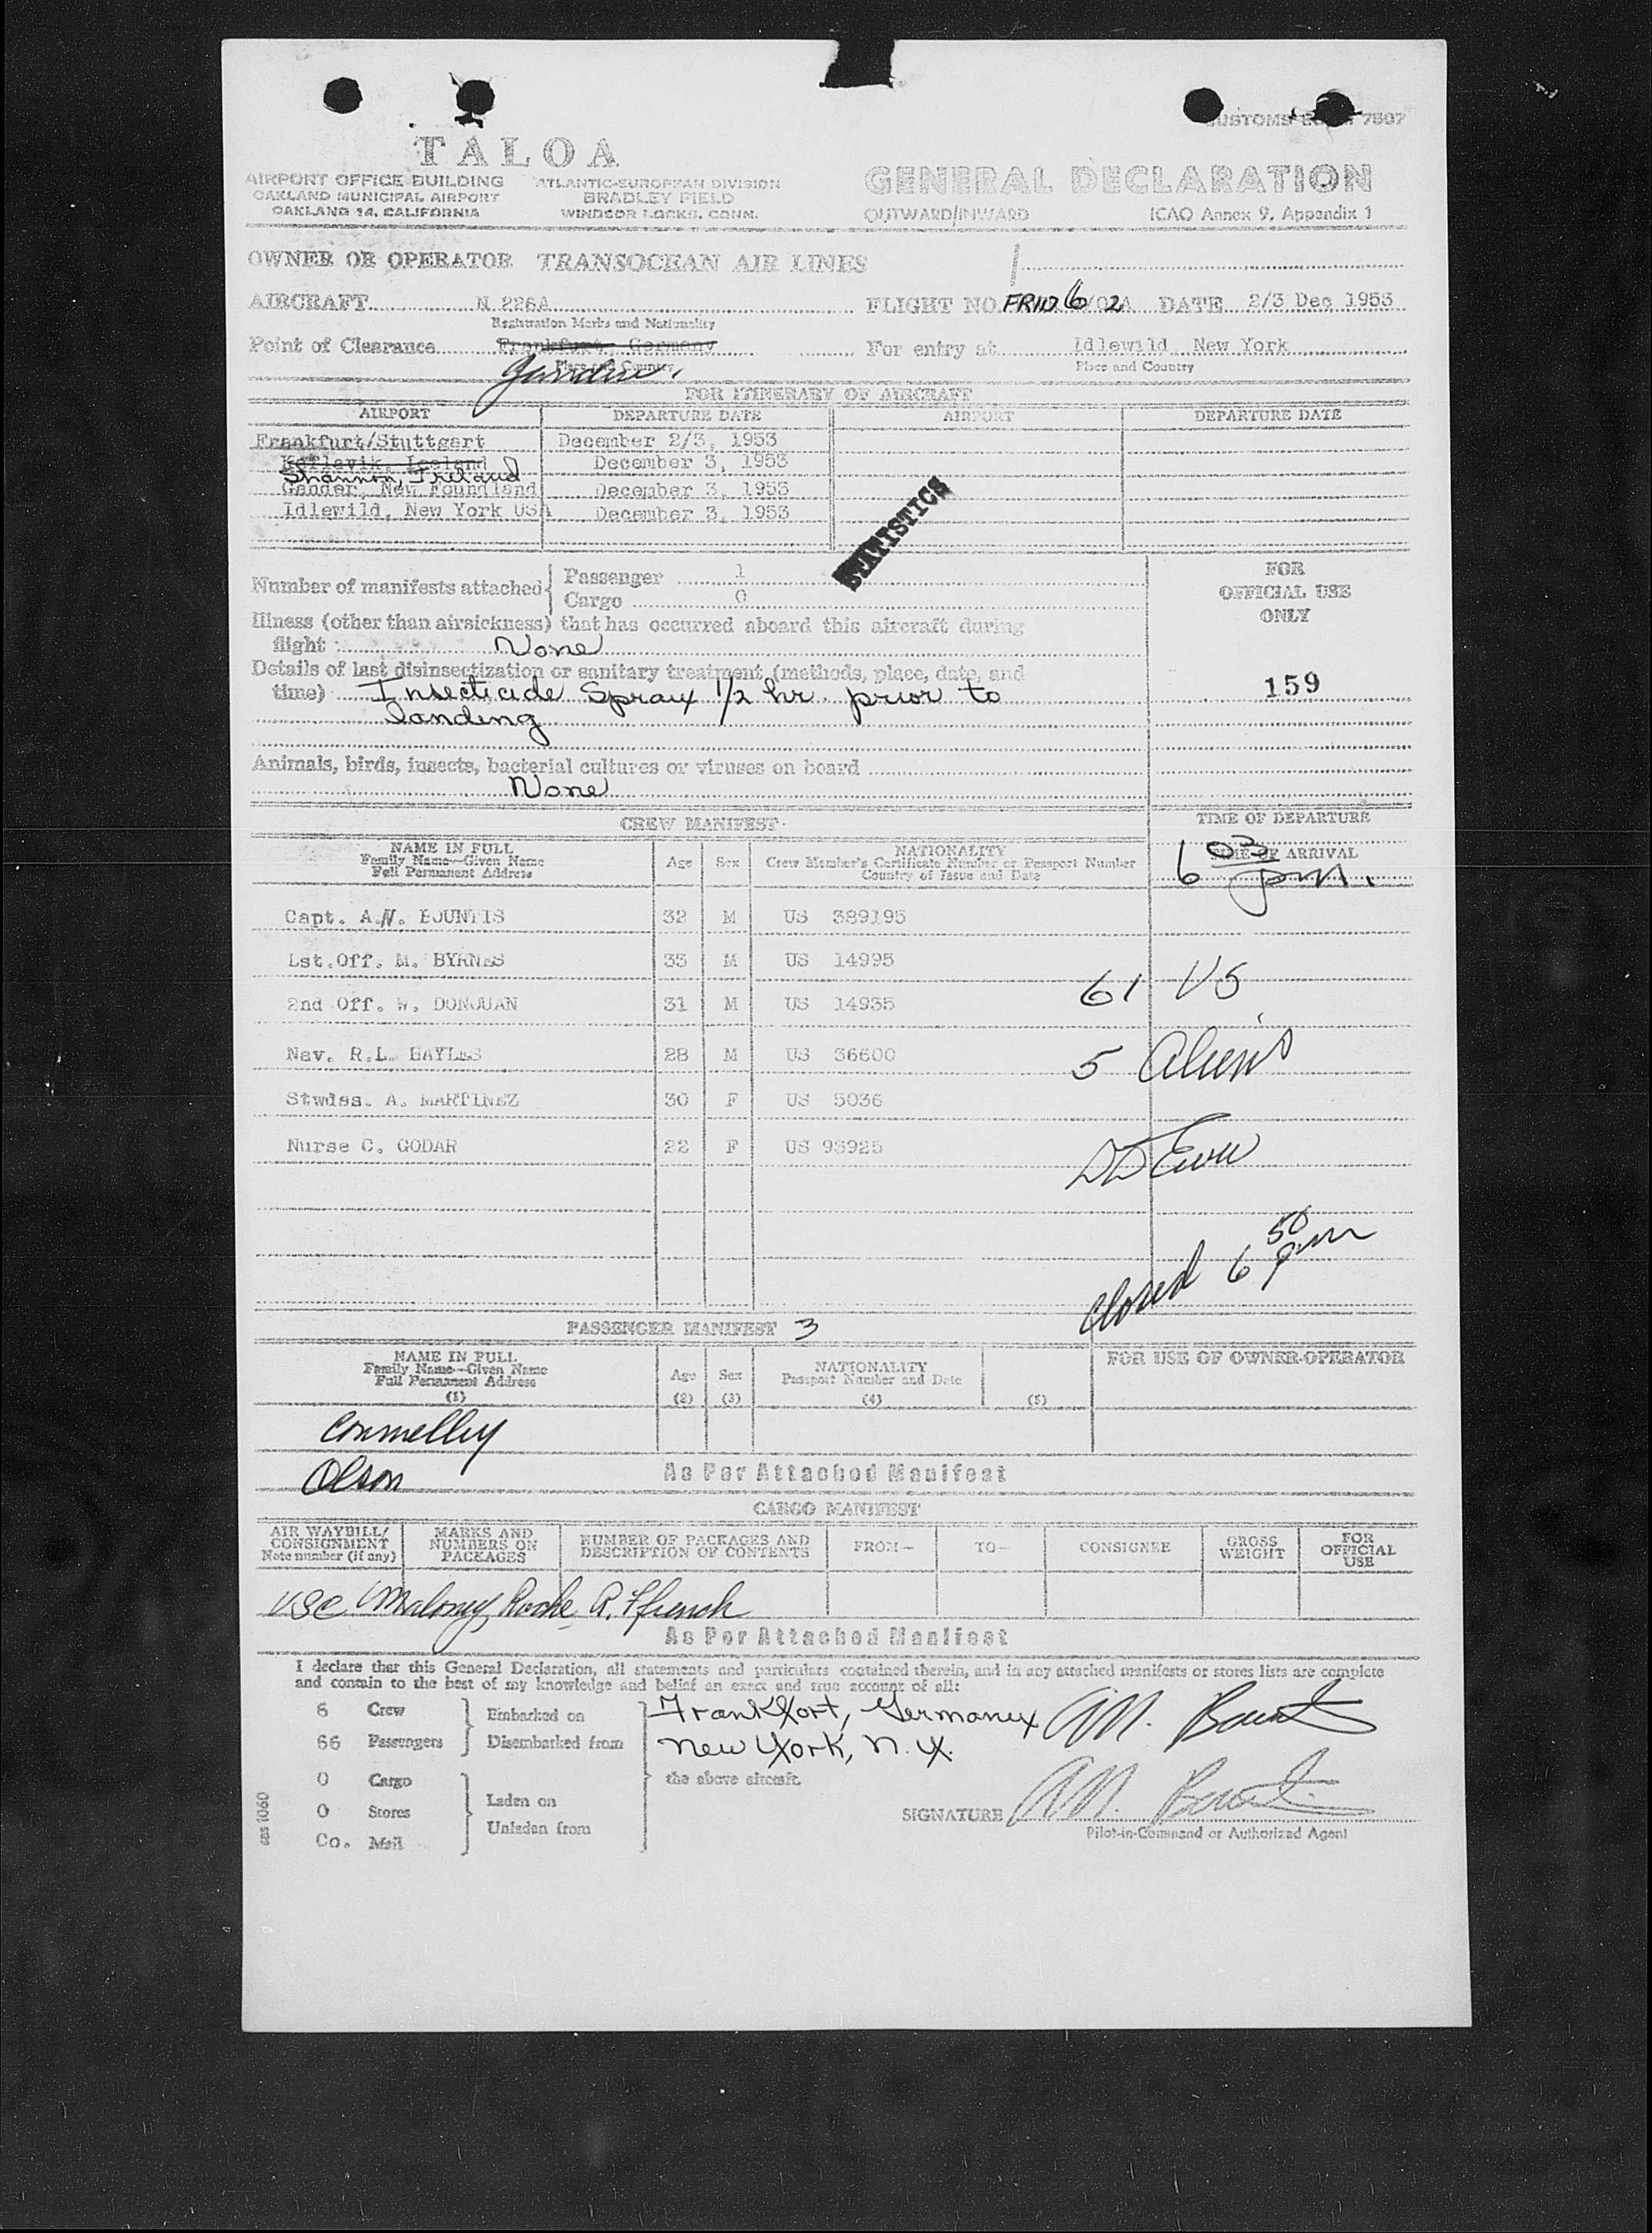 CUSTOMS 7507
TALOA
AIRPORT OFFICE BUILDING
OAKLAND MUNICIPAL AIRPORT
OAKLAND 14, CALIFORNIA
ATLANTIC-EUROPEAN DIVISION
BRADLEY FIELD
WINDSOR LOCKS, CONN.
GENERAL DECLARATION
OUTWARD/INWARD ICAO Annex 9, Appendix 1
OWNER OR OPERATOR TRANSOCEAN AIR LINES
AIRCRAFT N 226A FLIGHT NO. DATE 2/3 Dec 1953
Registration Marks and Nationality
Point of Clearance Frankfurt, Germany For entry at Idlewild, New York
Place and Country Place and Country
FOR ITINERARY OF AIRCRAFT
AIRPORT DEPARTURE DATE AIRPORT DEPARTURE DATE
Frankfurt/Stuttgart December 2/3, 1953
Keflavik, Iceland December 3, 1953
Shannon, Ireland
Gander, New Foundland December 3, 1953
Idlewild, New York USA December 3, 1953
STATISTICS
Number of manifests attached Passenger 1
Cargo 0
FOR
OFFICIAL USE
ONLY
Illness (other than airsickness) that has occurred aboard this aircraft during
flight None
Details of last disinsectization or sanitary treatment (methods, place, date, and
time) Insecticide Spray 1/2 hr. prior to
landing
159
Animals, birds, insects, bacterial cultures or viruses on board
None
CREW MANIFEST
TIME OF DEPARTURE
NAME IN FULL
Family Name—Given Name
Full Permanent Address
Age Sex
NATIONALITY
Crew Member's Certificate Number or Passport Number
Country of Issue and Date
TIME OF ARRIVAL
6 03 pm.
Capt. A.N. BOUNTIS 32 M US 389195
1st.Off. M. BYRNES 33 M US 14995
2nd Off. W. DONJUAN 31 M US 14935
61 US
Nav. R.L. BAYLES 28 M US 36600
5 Aliens
Stwdss. A. MARTINEZ 30 F US 5036
Nurse C. GODAR 22 F US 93925
Closed 6 50 pm
PASSENGER MANIFEST 3
NAME IN FULL
Family Name—Given Name
Full Permanent Address
(1)
Age
(2)
Sex
(3)
NATIONALITY
Passport Number and Date
(4)
(5)
FOR USE OF OWNER-OPERATOR
Connelley
Olson
As Per Attached Manifest
CARGO MANIFEST
AIR WAYBILL/
CONSIGNMENT
Note number (if any)
MARKS AND
NUMBERS ON
PACKAGES
NUMBER OF PACKAGES AND
DESCRIPTION OF CONTENTS
FROM—
TO—
CONSIGNEE
GROSS
WEIGHT
FOR
OFFICIAL
USE
USC Maloney, Roche, R. Ffrench
As Per Attached Manifest
I declare that this General Declaration, all statements and particulars contained therein, and in any attached manifests or stores lists are complete
and contain to the best of my knowledge and belief an exact and true account of all:
6 Crew Embarked on Frankfort, Germany
66 Passengers Disembarked from New York, N.Y.
0 Cargo the above aircraft.
0 Stores Laden on
Co. Mail Unladen from
SIGNATURE
Pilot-in-Command or Authorized Agent